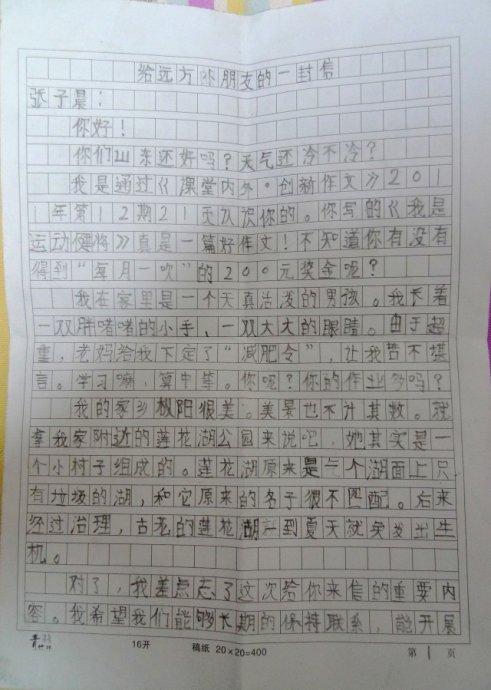 给远方小朋友的一封信
张子晨：
你好！
你们山东还好吗？天气还冷不冷？
我是通过《课堂内外·创新作文》201
1年第12期21页认识你的。你写的《我是
运动健将》真是一篇好作文！不知道你有没有
得到“每月一吹”的200元奖金呢？
我在家里是一个天真活泼的男孩。我长着
一双胖嘟嘟的小手，一双大大的眼睛。由于超
重，老妈给我下定了“减肥令”，让我苦不堪
言。学习嘛，算中等。你呢？你的作业多吗？
我的家乡枞阳很美。美景也不计其数。就
拿我家附近的莲花湖公园来说吧，她其实是一
个小村子组成的。莲花湖原来是一个湖面上只
有垃圾的湖，和它原来的名子很不匹配。后来
经过治理，古老的莲花湖一到夏天就焕发出生
机。
对了，我差点忘了这次给你来信的重要内
容。我希望我们能够长期的保持联系，能开展
16开 稿纸 20×20=400 第 1 页